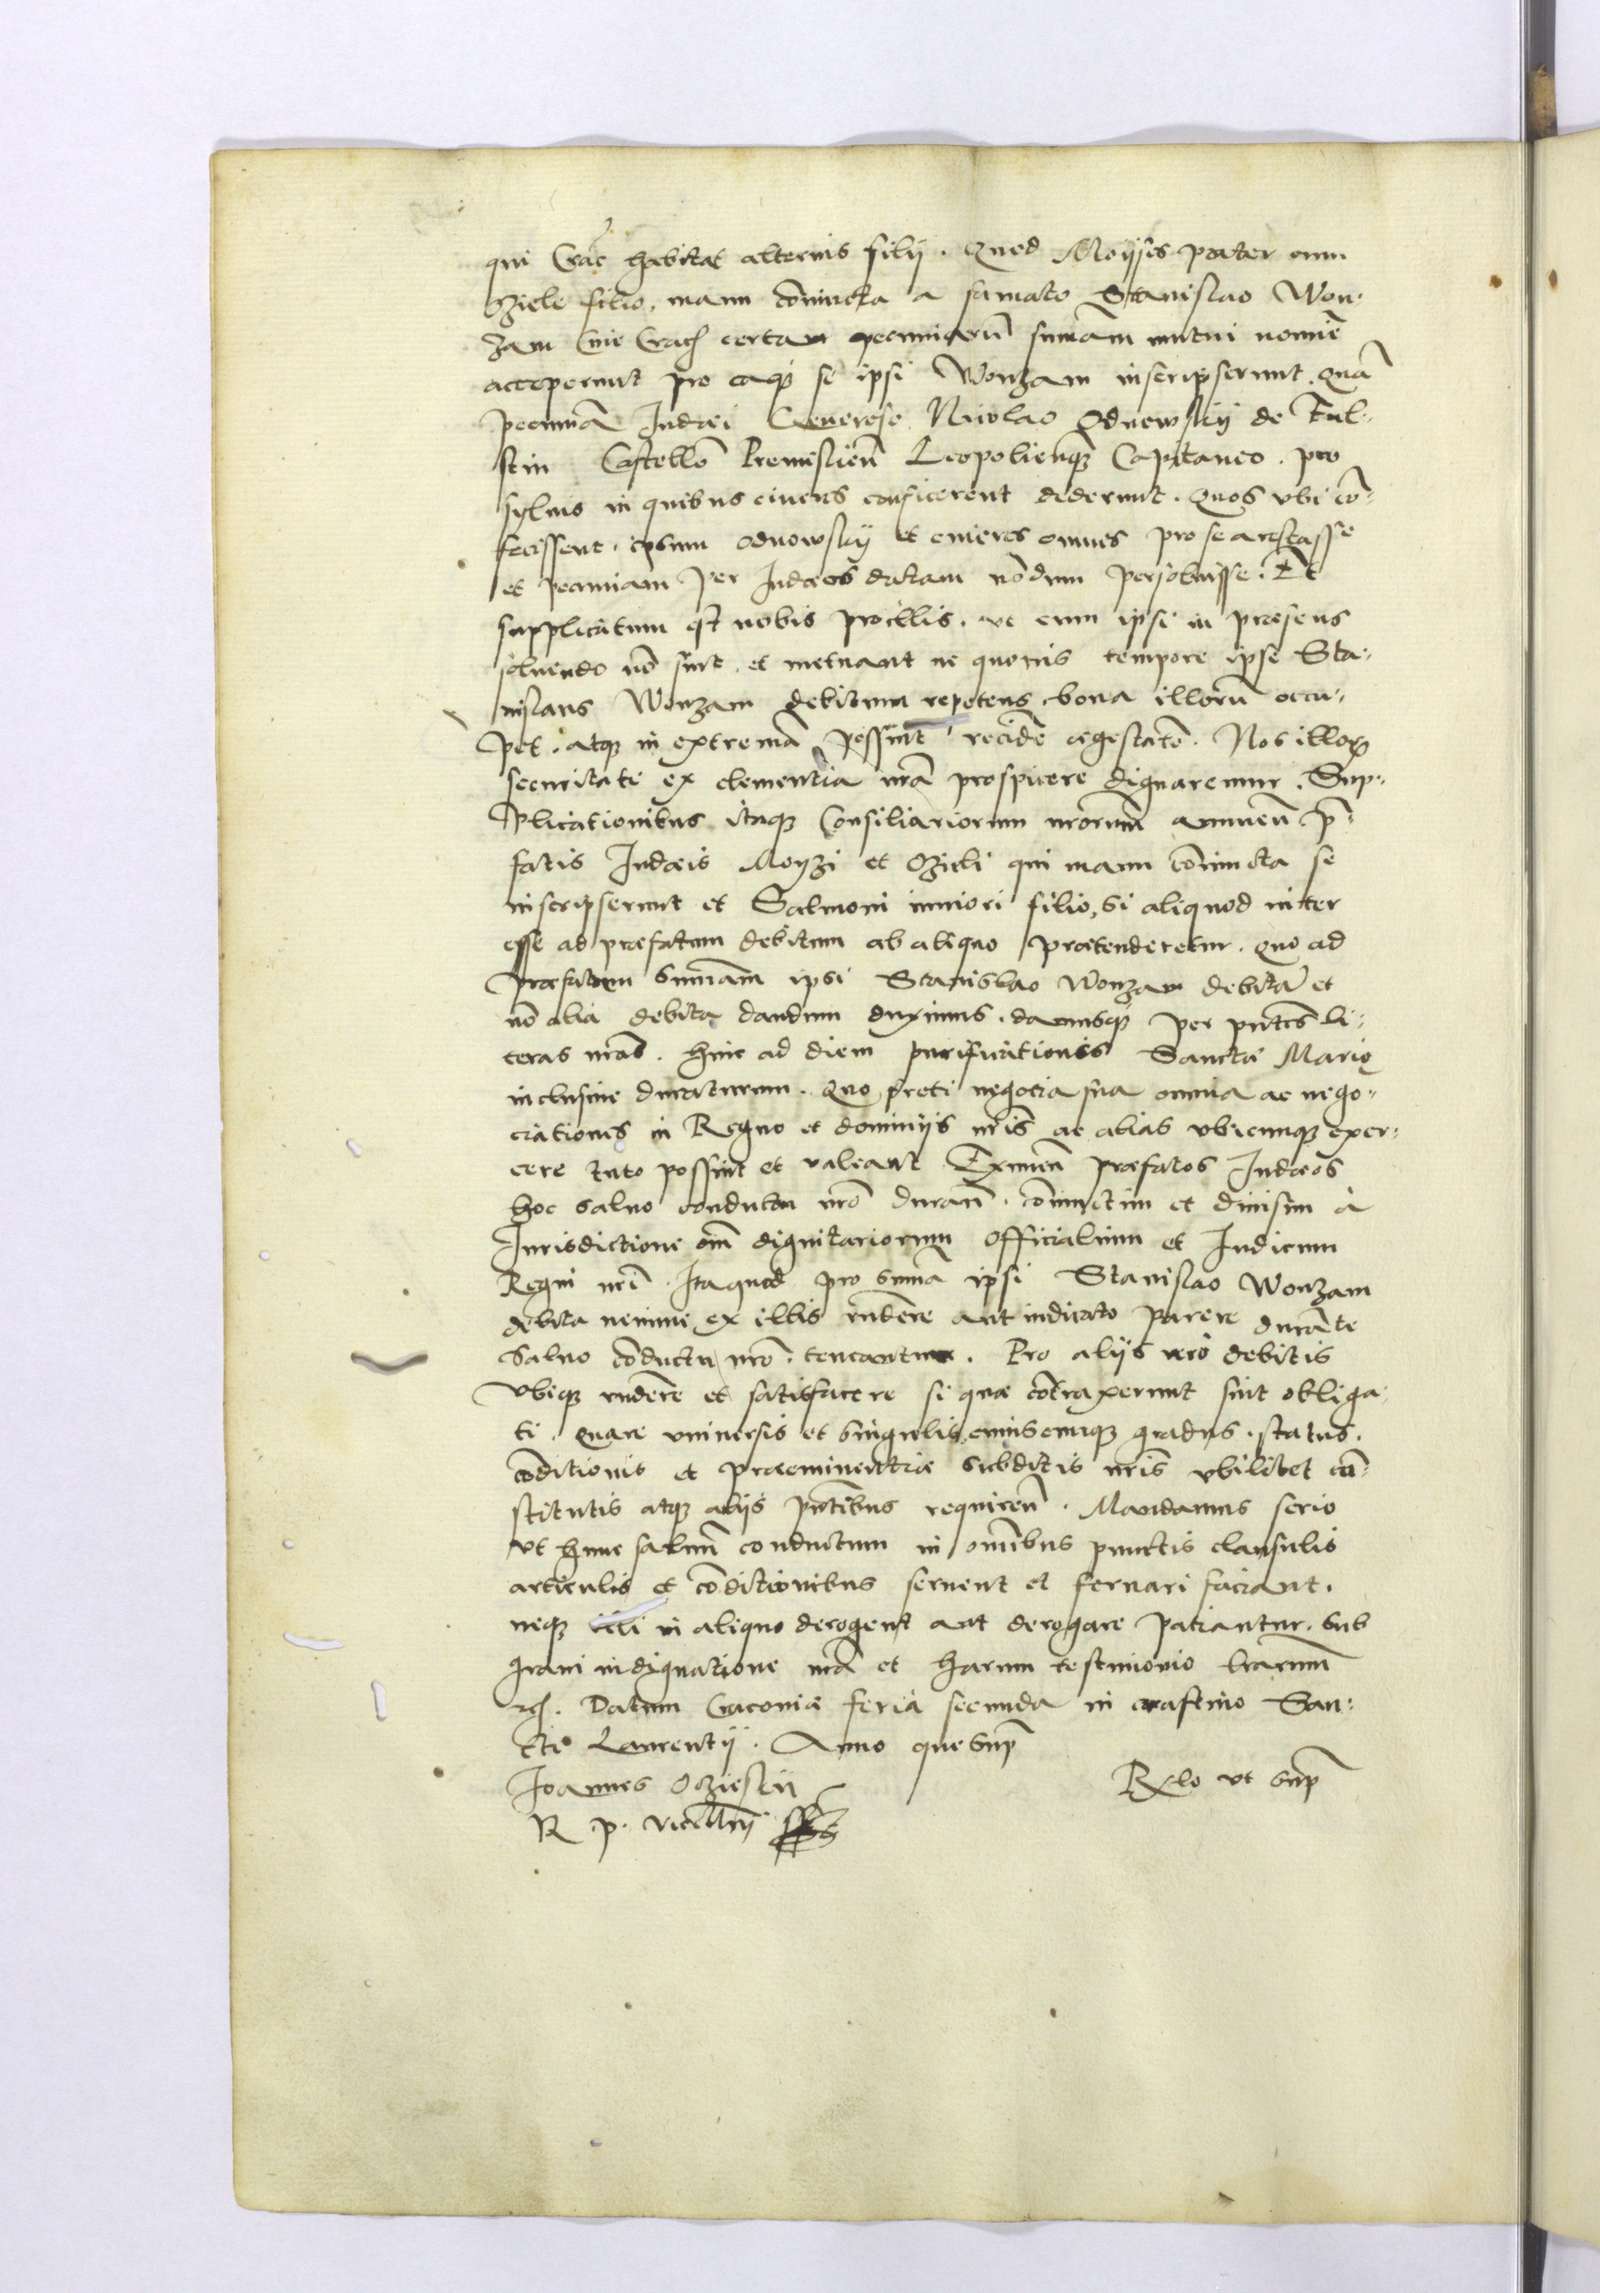 qui Crac̃ habitat alterius filij. Quod Moijses pater cum
Oziele filio, manu cõiuncta a famato Stanislao Won-
zam Ciue Crac̃ certam pecuniarũ sum̃am mutui nomiẽ
acceperunt pro eaq̃ se ipsi Wonzam inscripserunt. Quã
pecuniã Judæi Generoso Nicolao Odnowskij de Ful-
stin Castellõ Premislieñ Leopolienq̃ Capitaneo. pro
syluis in quibus cineres conficerent dederunt. Quos vbi cõ-
fecissent. ipsum Odnowskij et cineres omnes pro se arestasse
et pecuniam per Judæos datam nõdum persoluisse. Et
supplicatum est nobis pro illis. vt cum ipsi in præsens
soluendo nõ sint. et metuant ne quouis tempore ipse Sta-
nislaus Wonzam debitum repetens bona illorũ occu-
pet. atq̃ in extremã possint recidẽ ægestatẽ. Nos illoꝝ
securitati ex clementia nrã prospicere dignaremur. Sup-
plicationibus itaq̃ Consiliariorum nrorum annueñ p̃-
fatis Judæis Moyzi et Ozieli qui manu cõiuncta se
inscripserunt et Salmoni iuniori filio, si aliquod inter
esse ad præfatum debitum ab aliquo prætenderetur. quo ad
præfatam sum̃am ipsi Stanislao Wonzam debitã et
nõ alia debita dandum duximus. damusq̃ per pñtes li-
teras nras. hinc ad diem purificationis Sanctæ Marię
inclusiue duraturum. Quo freti negocia sua omnia ac nego-
ciationes in Regno et dominijs nris ac alias vbicunq̃ exer-
cere tuto possint et valeant Eximeñ præfatos Judæos
hoc saluo conductu nrõ durañ. cõiunctim et diuisim à
Jurisdictione om̃ dignitariorum Officialium et Judicum
Regni nri. Ita quod pro sum̃a ipsi Stanislao Wonzam
debita nemini ex illis rñdere aut iudicato parere durãte
saluo cõductu nrõ. teneantur. Pro alijs verò debitis
vbiq̃ rñdere et satisfacere si quæ cõtraxerunt sint obliga-
ti. Quare vniuersis et singulis cuiuscunq̃ gradus. status.
cõditionis et præeminentiæ subditis nris vbilibet cõ-
stitutis atq̃ alijs pñtibus requireñ. Mandamus serio
vt hunc saluũ conductum in om̃ibus punctis clausulis
articulis et cõditionibus seruent et seruari faciant.
neq̃ illi in aliquo derogent aut derogare patiantur. sub
graui indignatione nrã et harum testimonio lrarum
rc̃. Datum Cracouiæ feria secunda in crastino San-
cti Laurentij. Anno quo sup̃
Joannes Ocziesky Rłło vt sup̃
R p. vicecllrij sst